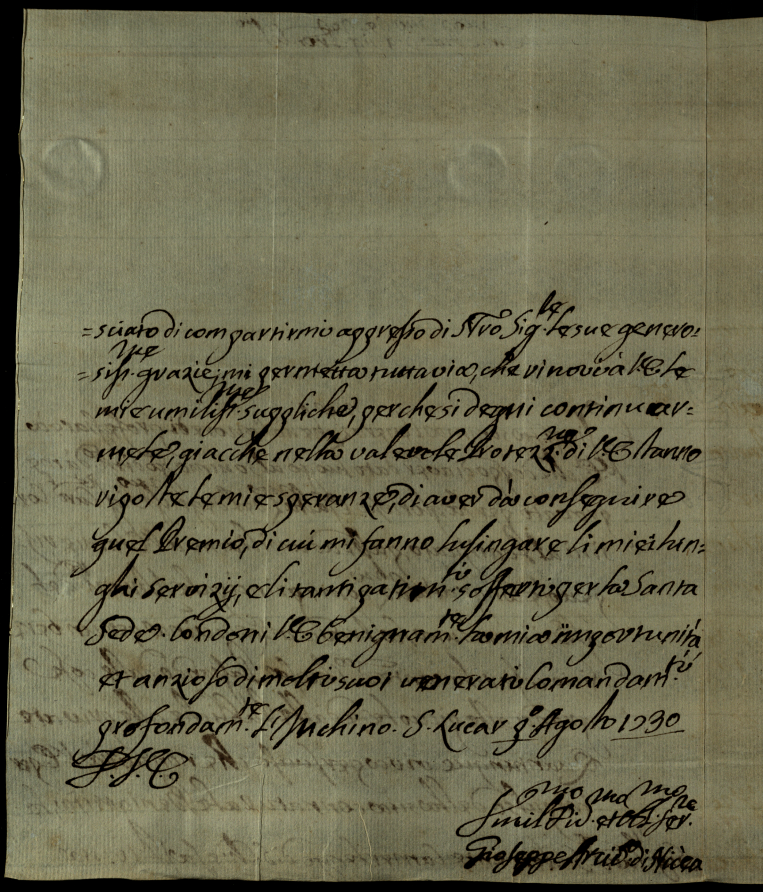 =sciato di compartirmi appresso di Nro Sig.re le sue genero=
=siss.me grazie; mi permetta tuttavia, che rinovi à V.E. le
mie umiliss.me suppliche, perche si degni continuar=
mele, giacche nella valevole Protez.ne di V.E. stanno
riposte le mie speranze, di aver da conseguire
quel Premio, di cui mi fanno lusingare li miei lun=
ghi Servizij, e li tanti patim.ti sofferti per la Santa
Sede. Condoni V.E. benignam.te la mia importunità
et anzioso di molti suoi venerati Comandam.ti
profondam.te L'Inchino. S. Lucar Agosto 1730
Umil.mo Div.mo et Obl. Ser.re
Gioseppe Arciv.o di Nicea